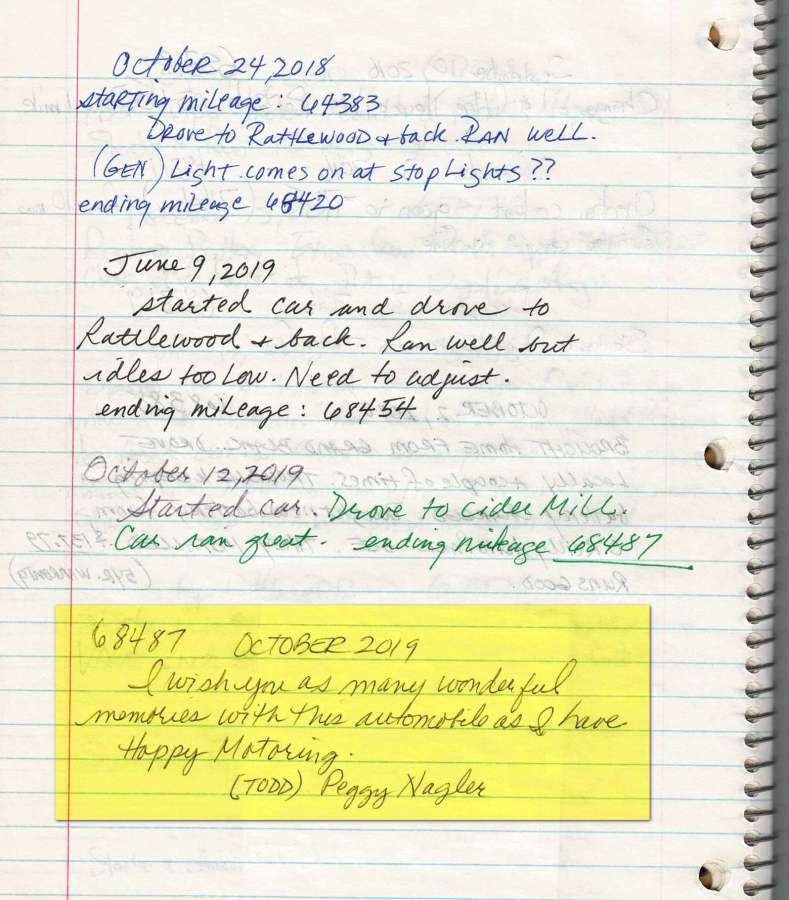 October 24, 2018
starting mileage: 64383
Drove to Rattlewood & back. Ran well.
(GEN) Light comes on at stop Lights??
ending mileage 68420
June 9, 2019
started car and drove to
Rattlewood & back. Ran well but
idles too low. Need to adjust.
ending mileage: 68454
October 12, 2019
Started car. Drove to cider Mill.
Car ran great. ending mileage 68487
68487 OCTOBER 2019
I wish you as many wonderful
memories with this automobile as I have
Happy Motoring.
(TODD) Peggy Nagler